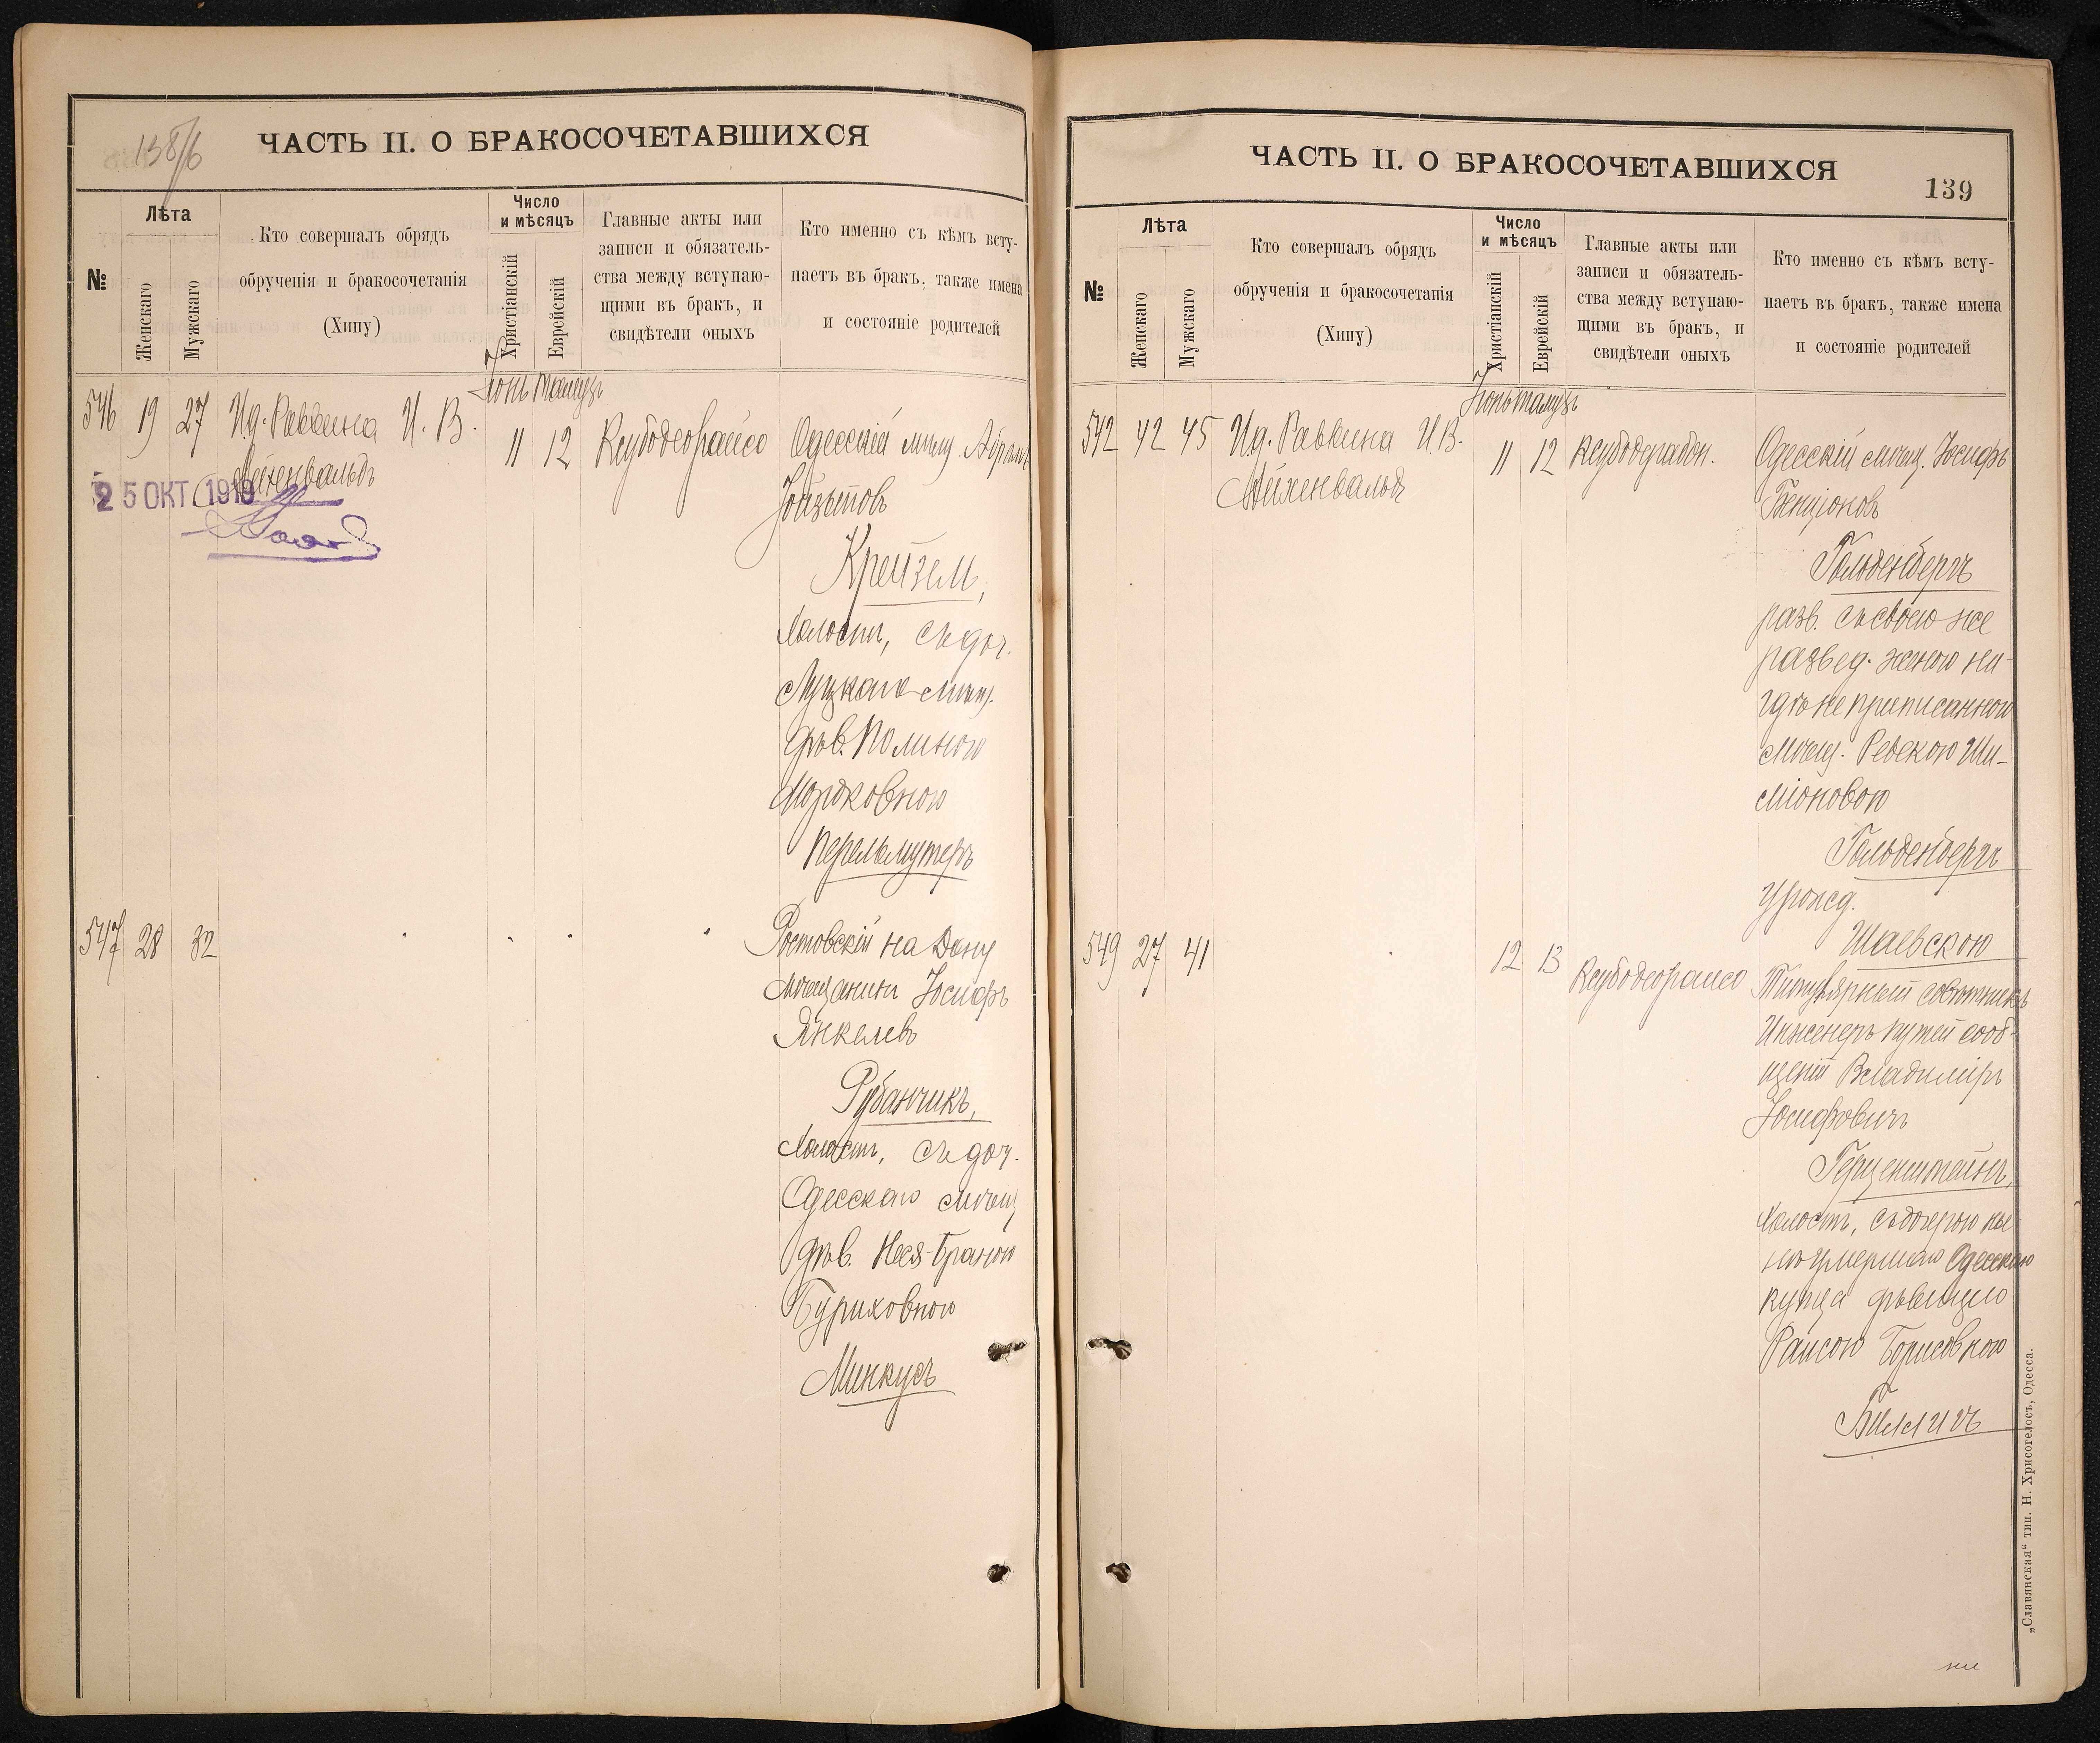 138/б
ЧАСТЬ II. О БРАКОСОЧЕТАВШИХСЯ
№
Лѣта
Женскаго
Мужскаго
Кто совершалъ обрядъ
обрученія и бракосочетанія
(Хипу)
Число
и мѣсяцъ
Христіанскій
Еврейскій
Главные акты или
записи и обязатель-
ства между вступаю-
щими въ бракъ, и
свидѣтели оныхъ
Кто именно съ кѣмъ всту-
паетъ въ бракъ, также имена
и состояніе родителей
Іюнь Тамузъ
546 19 27 И.д. Раввина И. В. 11 12 Ксубодеорайсо Одесскій мѣщ. Абрамъ
Айхенвальдъ
25 ОКТ 1919
Крейзелъ,
Холостъ, съ доч.
Луцкаго мѣщ.
дѣв. Полиною
Мордковною
Перельмутеръ
547 28 32 Ростовскій на Дону
Мѣщанинъ Іосифъ
Янкелевъ
Рубанчикъ,
Холостъ, съ доч.
Одесскаго мѣщ
дѣв. Неся-Браною
Буриховною
Минкусъ
ЧАСТЬ II. О БРАКОСОЧЕТАВШИХСЯ
139
№
Лѣта
Женскаго
Мужскаго
Кто совершалъ обрядъ
обрученія и бракосочетанія
(Хипу)
Число
и мѣсяцъ
Христіанскій
Еврейскій
Главные акты или
записи и обязатель-
ства между вступаю-
щими въ бракъ, и
свидѣтели оныхъ
Кто именно съ кѣмъ всту-
паетъ въ бракъ, также имена
и состояніе родителей
Іюнь Тамузъ
542 42 45 И.д. Раввина И.В. 11 12 Одесскій мѣщ. Іосифъ
Айхенвальдъ Бенціоновъ
Гольденбергъ
разв. съ своею же
развед. женою ни-
гдѣ не приписанною
мѣщ. Ревекою Ши-
міоновою
Гольденбергъ
урожд.
Шаевскою
549 27 41 12 13 Ксубодеорайсо Титулярный совѣтникъ
Инженеръ путей сооб-
щеній Владиміръ
Іосифовичъ
Герценштейнъ,
Холостъ, съ дочерью ны
нѣ умершаго Одесскаго
купца дѣвицею
Раисою Борисовною
Биллигъ
„Славянская“ тип. Н. Хрисогелосъ, Одесса.